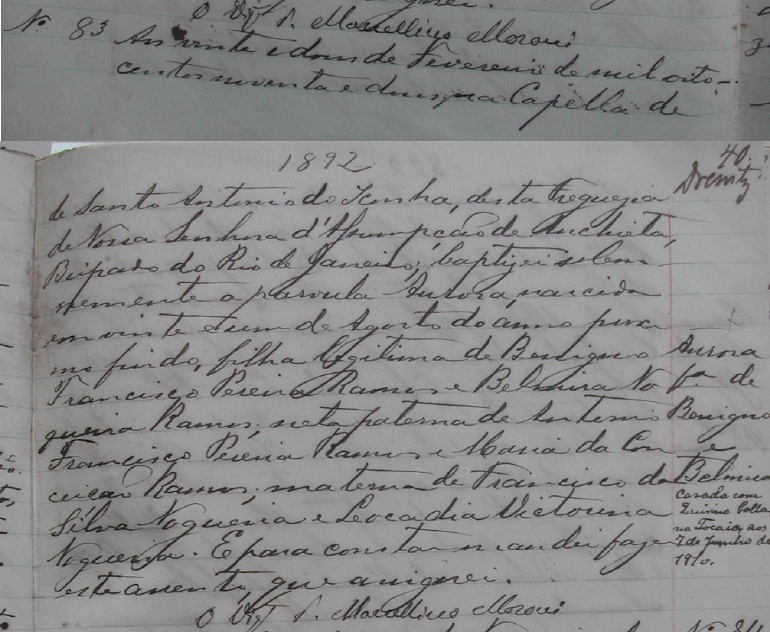 O Vigº P. Marcellino Moroni
Nº 83
Aos vinte e dous de Fevereiro de mil oito-
centos noventa e dous, na Capella de
1892
40.
de Santo Antonio do
, desta Freguezia
de Nossa Senhora d'Assumpção de Anchieta,
Bispado do Rio de Janeiro, baptizei solem
nemente a parvula Aurora, nascida
em vinte e um de Agosto do anno proxi
mo findo, filha legitima de Benigno
Francisco Pereira Ramos e Belmira No
gueira Ramos; neta paterna de Antonio
Francisco Pereira Ramos e Maria da Con
ceicão Ramos, materna de Francisco da
Silva Nogueira e Leocadia Victorina
Nogueira. E para constar mandei fazer
este assento, que assignei.
O Vigº P. Marcellino Moroni
Aurora
fª de
Benigno
e
Belmira
Casada com
na
aos
7 de Junho de
1910.
Nº 84